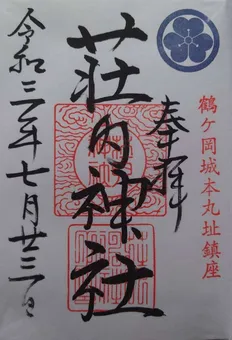 鶴ケ岡城本丸址鎮座
奉拝
荘内神社
令和三年七月廿三日